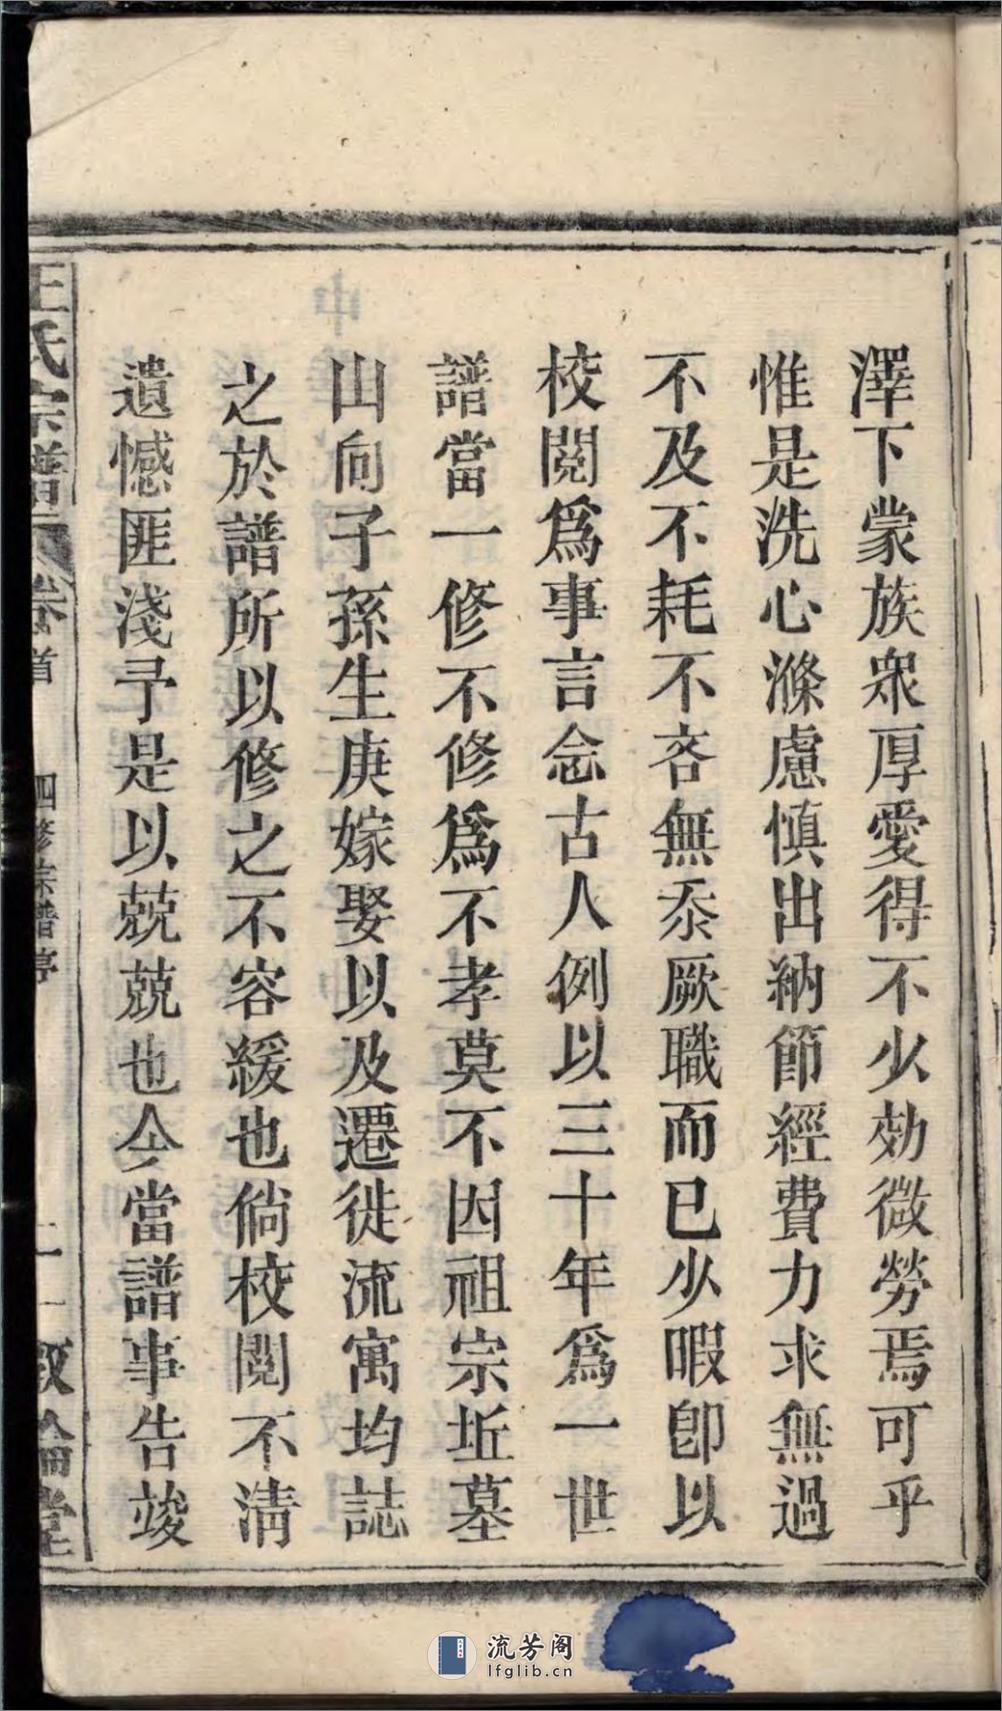 澤下蒙族衆厚愛得不少効微勞焉可乎
惟是洗心滌慮慎出納節經費力求無過
不及不耗不吝無忝厥職而已少暇卽以
校閱爲事言念古人例以三十年爲一世
譜當一修不修爲不孝莫不因祖宗坵墓
山向子孫生庚嫁娶以及遷徙流寓均誌
之於譜所以修之不容緩也倘校閱不淸
遺憾匪淺予是以兢兢也今當譜事告竣
王氏宗譜 卷首 四修宗譜 敦倫堂
流芳阁
lfglib.cn